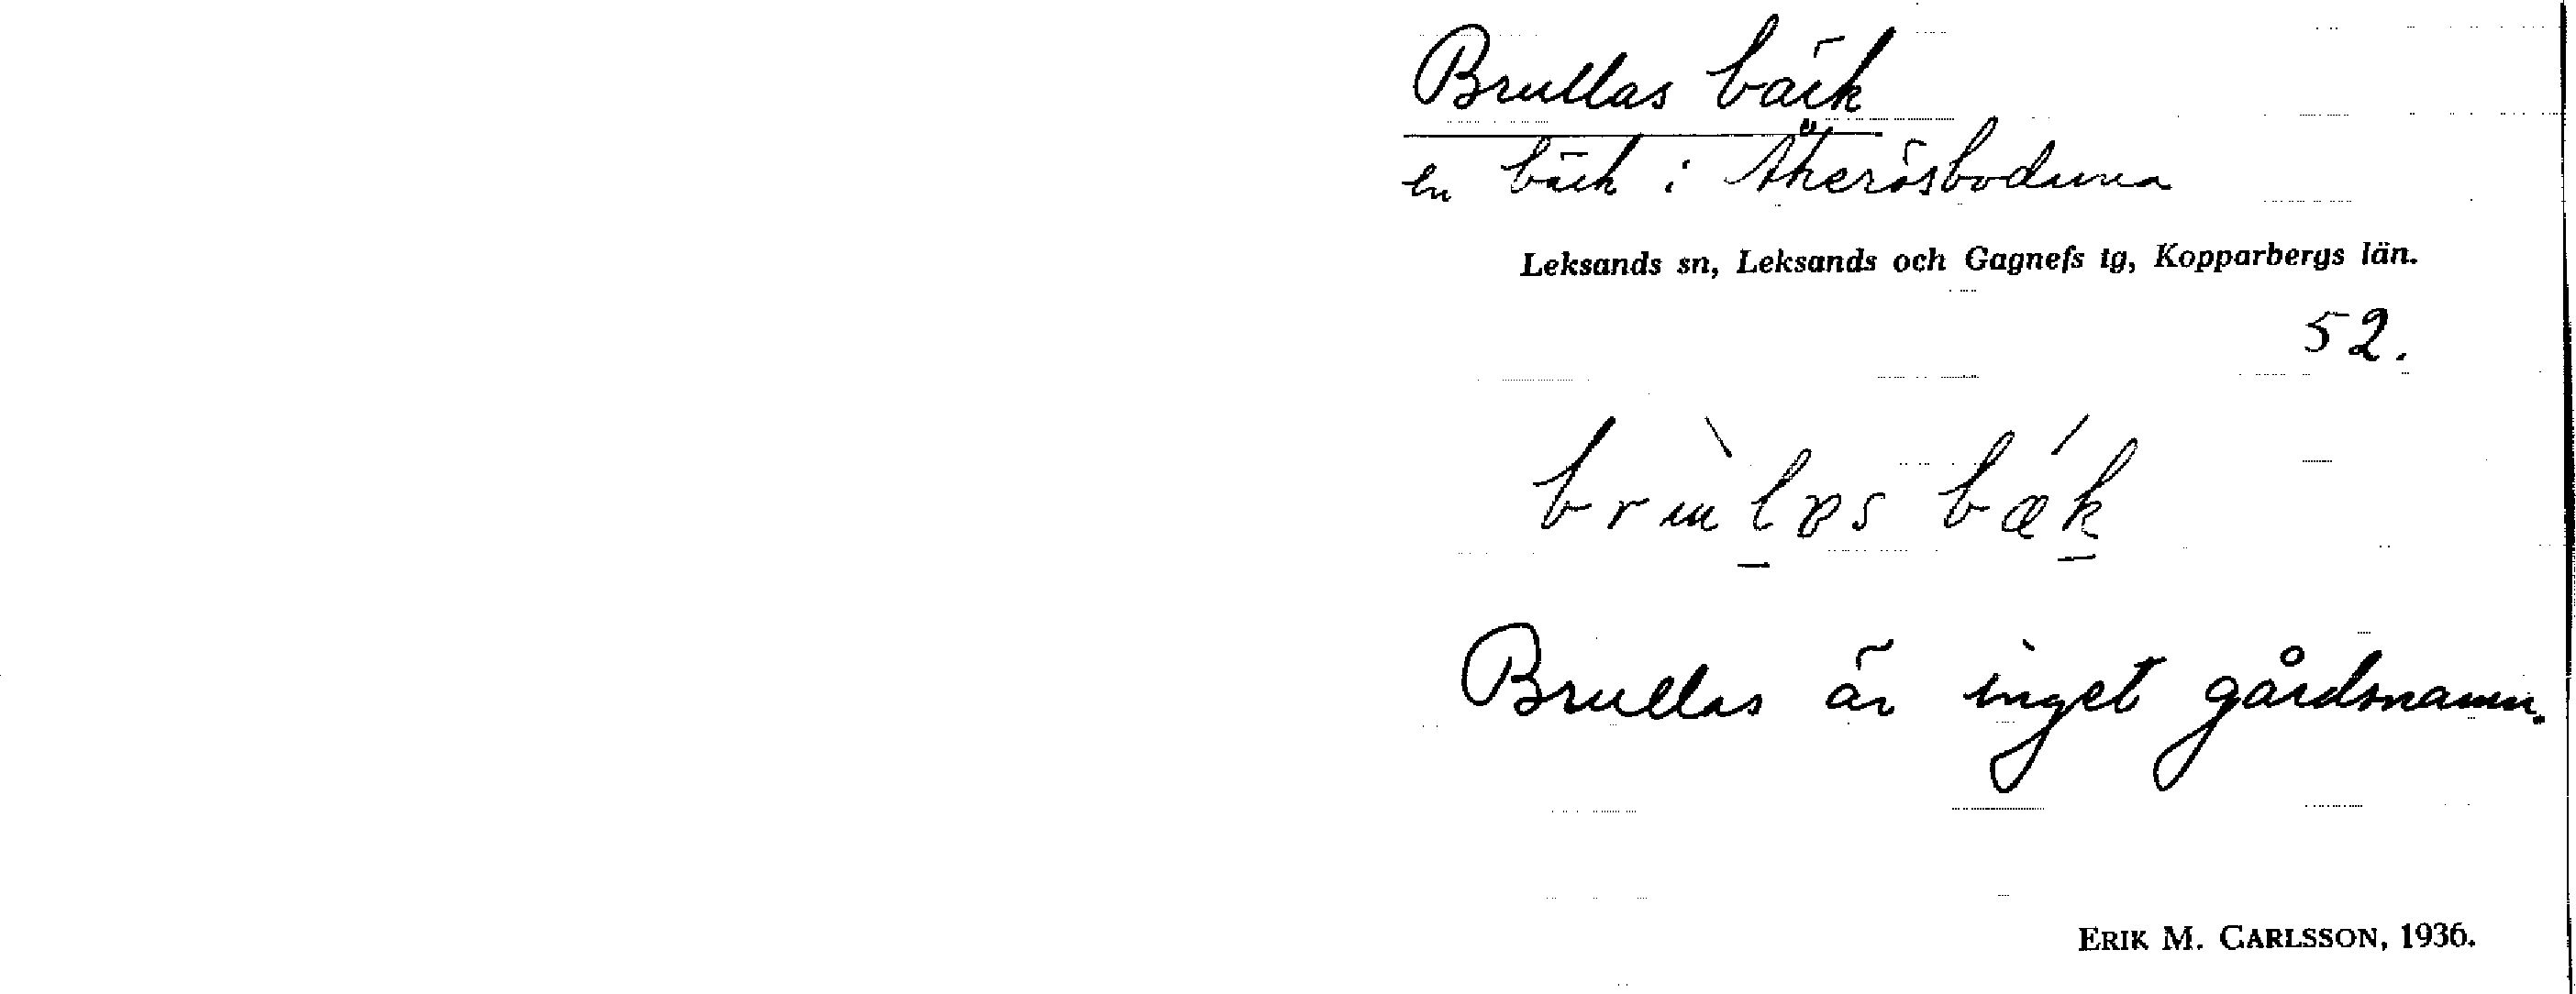 Brullas bäck
en bäck i Åkeröbodarna
Leksands sn, Leksands och Gagnefs tg, Kopparbergs län.
52.
Brullas är inget gårdsnamn.
ERIK M. CARLSSON, 1936.